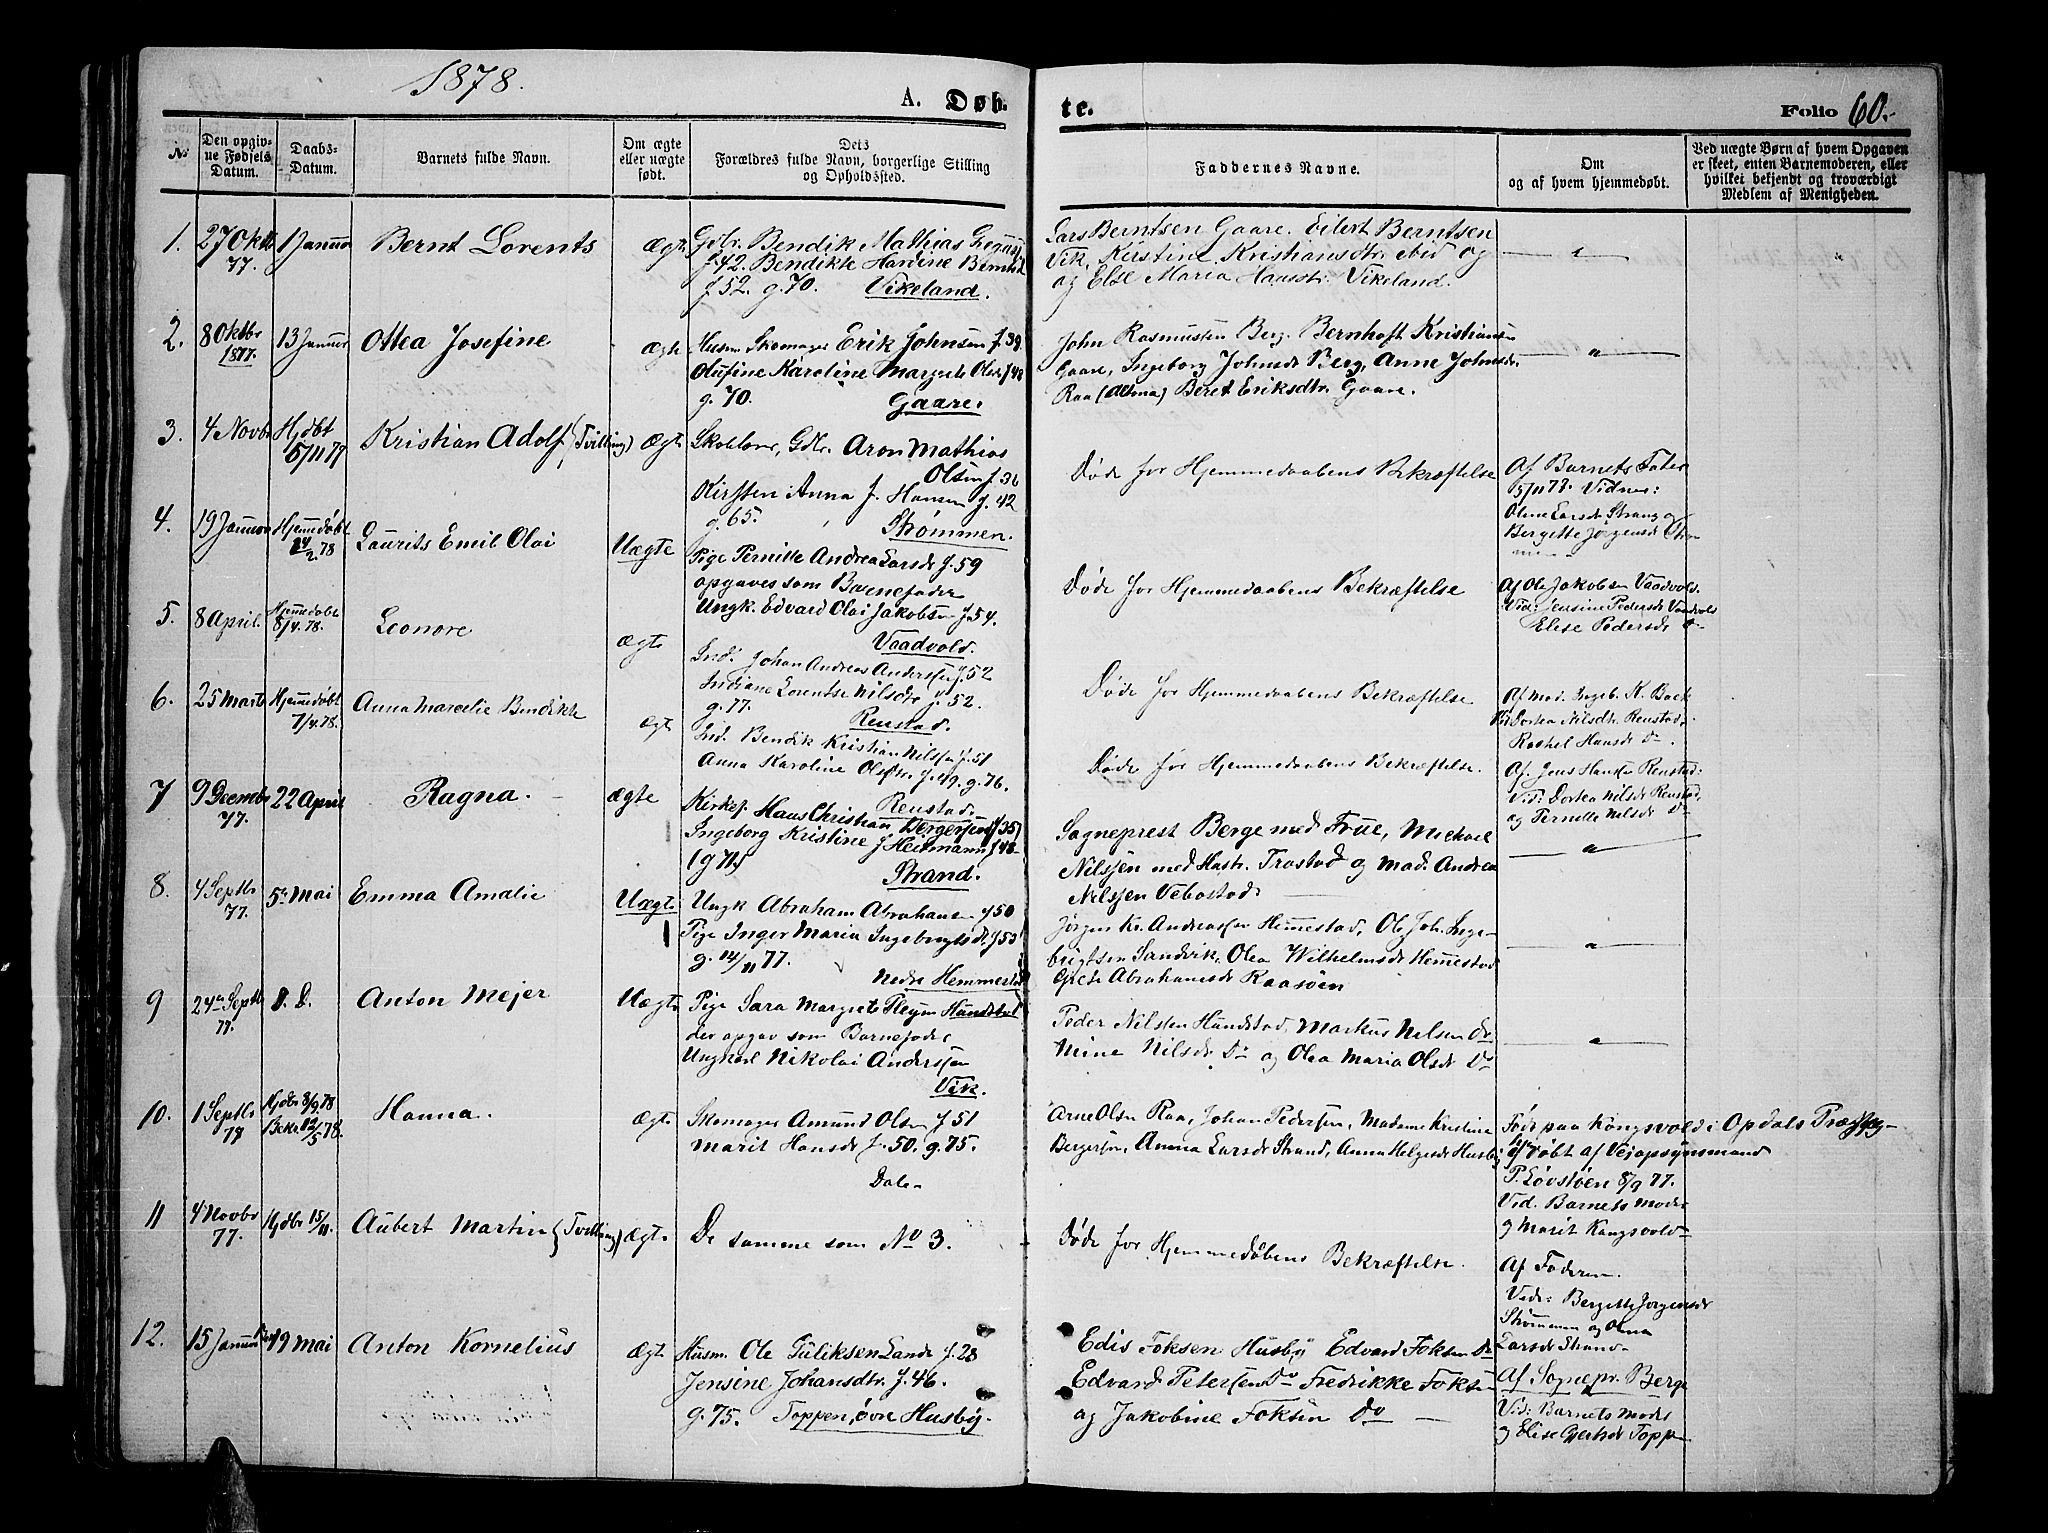 1878.
A. Døb-
te.
Folio 60.
No
Den opgiv-
ne Fødsels
Datum.
Daabs-
Datum.
Barnets fulde Navn.
Om ægte
eller uægte
født.
Dets
Forældres fulde Navn, borgerlige Stilling
og Opholdssted.
Faddernes Navne.
Om
og af hvem hjemmedøbt.
Ved uægte Børn af hvem Opgaven
er skeet, enten Barnemoderen, eller
hvilket bekjendt og troværdigt
Medlem af Menigheden.
1.
27 Oktbr
77.
1 Januar
Bernt Lorents
Ægte
Gdbr. Bendik Mathias
f. 42. Bendikte Hardine
f 52. g. 70. Vikeland.
Lars Berntsen Gaare. Eilert Berntsen
Vik, Kirstine Kristiansdtr. ibid og
og Else Maria Hansdtr. Vikeland.
2.
8 Oktbr
1877.
13 Januar
Ottea Josefine
Ægte
Husm Skomager Erik Johnsen f. 39
Olufine Karoline Margrete Olsdr f 48
g. 70. Gaare.
John Rasmussen Berg. Bernhoft Kristiansen
Gaare, Ingeborg Johnsdr Berg, Anne Johnsdr.
Raa (Altma) Beret Eriksdtr. Gaare.
3.
4 Novbr
Hjdbt
5/11 77
Kristian Adolf (Tvilling)
Ægte
Skolelærer, Gdbr. Aron Mathias
Olsen f. 36
Kirsten Anna f. Hansen f. 42
g. 65. Strømmen.
Døde før Hjemmedaabens Bekræftelse
Af Barnets Fader
5/11 77. Vidner:
Olene Larsdr Strand og
Bergette Jørgensdr
4.
19 Januar
Hjemmedøbt
24/2 78
Laurits Emil Olai
Uægte
Pige Pernille Andrea Larsdr f. 59
opgaves som Barnefader
Ungk. Edvard Olai Jakobsen f. 54.
Vaadvold.
Døde før Hjemmedaabens Bekræftelse
Af Ole Jakobsen Vaadvold.
Vid: Jensine Pedersdr Vaadvold
Elise Pedersdr Do
5.
8 April.
Hjemmedøbt
8/4. 78.
Leonore
Ægte
Ind. Johan Andreas Andersen f. 52
Indiane Lorentse Nilsdtr f. 52.
g. 77. Renstad.
Døde før Hjemmedaabens Bekræftelse
Af Mad. Ingeb. K. Bach
Vid Dortea Nilsdtr. Renstad.
Rachel Hansdr Do.
6.
25 Marts
Hjemmedøbt
7/4. 78.
Anna Marcelie Bendikte
ægte
Ind. Bendik Kristian Nilsen f. 51
Anna Karoline Olsdtr f. 49. g. 76.
Renstad.
Døde før Hjemmedaabens Bekræftelse.
Af Jens Hansen Renstad:
Vid: Dortea Nilsdr Renstad
og Pernelle Nilsdr Do
7
9 Decembr
77.
22 April
Ragna.
Ægte
Kirkes. Hans Christian Bergersen (f 35)
Ingeborg Kristine f Heitmann f 48
(g 71) Strand.
Sogneprest Berge med Frue, Michael
Nilssen med Hustr. Trastad og Mad. Andrea
Nilssen Vebostad
8.
4 Septbr
77.
5te Mai
Emma Amalie
Uægte
Ungk Abraham Abrahamsen f 50
Pige Inger Maria Ingebrigtsdr. f 53
g. 14/11 77.
Nedre Hemmestad
Jørgen Kr. Andreassen Hemmestad, Ole Joh. Inge-
brigtsen Sandvik, Olea Wilhelmsdr Hemmestad
Grete Abrahamsdr Raasøen
9
24de Septbr
77.
S. D.
Anton Mejer
Uægte
Pige Sara Margrete Hundstad
der opgav som Barnefader
Ungkarl Nikolai Anderssen
Vik.
Peder Nilssen Hundstad, Markus Nilsen Do
Mine Nilsdr Do og Olea Maria Olsdr Do
10.
1 Septbr
77
Hjdbt 8/9. 78
Bekr. 12/5 78.
Hanna.
Ægte
Skomager Amund Olsen f 51
Marit Hansdr f. 50. g. 75.
Dale
Arne Olsen Raa, Johan Pedersen, Madame Kristine
Bergersen, Amma Larsdr Strand, Anna Helgesdr Husby
Født paa Kongsvold i Opdals Præstegj-
Hj døbt af Vejopsynsmand
P. Løvstøen 8/9 77.
Vid. Barnets Moder
og Marit Kongsvold
11
4 Novbr
77.
Hjdbt 15/11
Aubert Martin (Tvilling)
Ægte
De samme som No 3.
Døde før Hjemmedøbens Bekræftelse.
Af Faderen.
Vidr: Bergette Jørgensdr
Strømmen og Olena
Larsdr Strand
12.
15 Januar
19 Mai
Anton Kornelius
Ægte
Husm. Ole Tuliksen Lande f. 28
Jensine Johansdtr. f. 46.
g. 75. Toppen, øvre Husby.
Edis Foksen Husby Edvard Foksen Do
Edvard Petersen Do Fredrikke Foksen
og Jakobine Foksen Do
Af Sognepr. Berge
Vid: Barnets Moder
og Elise Gjertsdr Toppen